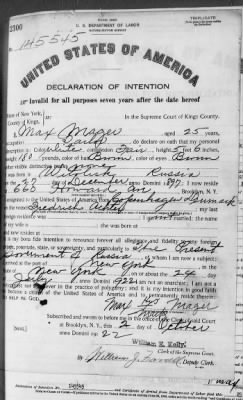 2300
TRIPLICATE
U. S. DEPARTMENT OF LABOR
NATURALIZATION SERVICE
145545
UNITED STATES OF AMERICA
DECLARATION OF INTENTION
Invalid for all purposes seven years after the date hereof
State of New York,
County of Kings,
In the Supreme Court of Kings County.
Max Mazer aged 25 years,
occupation Tailor, do declare on oath that my personal
description is: Color White, complexion Fair, height 5 feet 6 inches,
weight 180 pounds, color of hair Brown, color of eyes Brown
other visible distinctive marks
Russia
day of December, anno Domini 1897; I now reside
at 660 Howard Ave, Brooklyn, N. Y.
I emigrated to the United States of America from Copenhagen Denmark
on the vessel Fredrik; my last
foreign residence was; I am not married; the name
It is my bona fide intention to renounce forever all allegiance and fidelity to any foreign
prince, potentate, state, or sovereignty, and particularly to The Present
Government of Russia, of whom I am now a subject;
I arrived at the port of New York, in the
State of New York, on or about the 24 day
of, anno Domini 1922; I am not an anarchist; I am not a
polygamist nor a believer in the practice of polygamy; and it is my intention in good faith
to become a citizen of the United States of America and to permanently reside therein:
SO HELP ME GOD.
Max Mazer
Subscribed and sworn to before me in the office of the Clerk of said Court
at Brooklyn, N. Y., this 2 day of October
anno Domini 1922
William E. Kelly,
Clerk of the Supreme Court.
By William J.
Deputy Clerk.